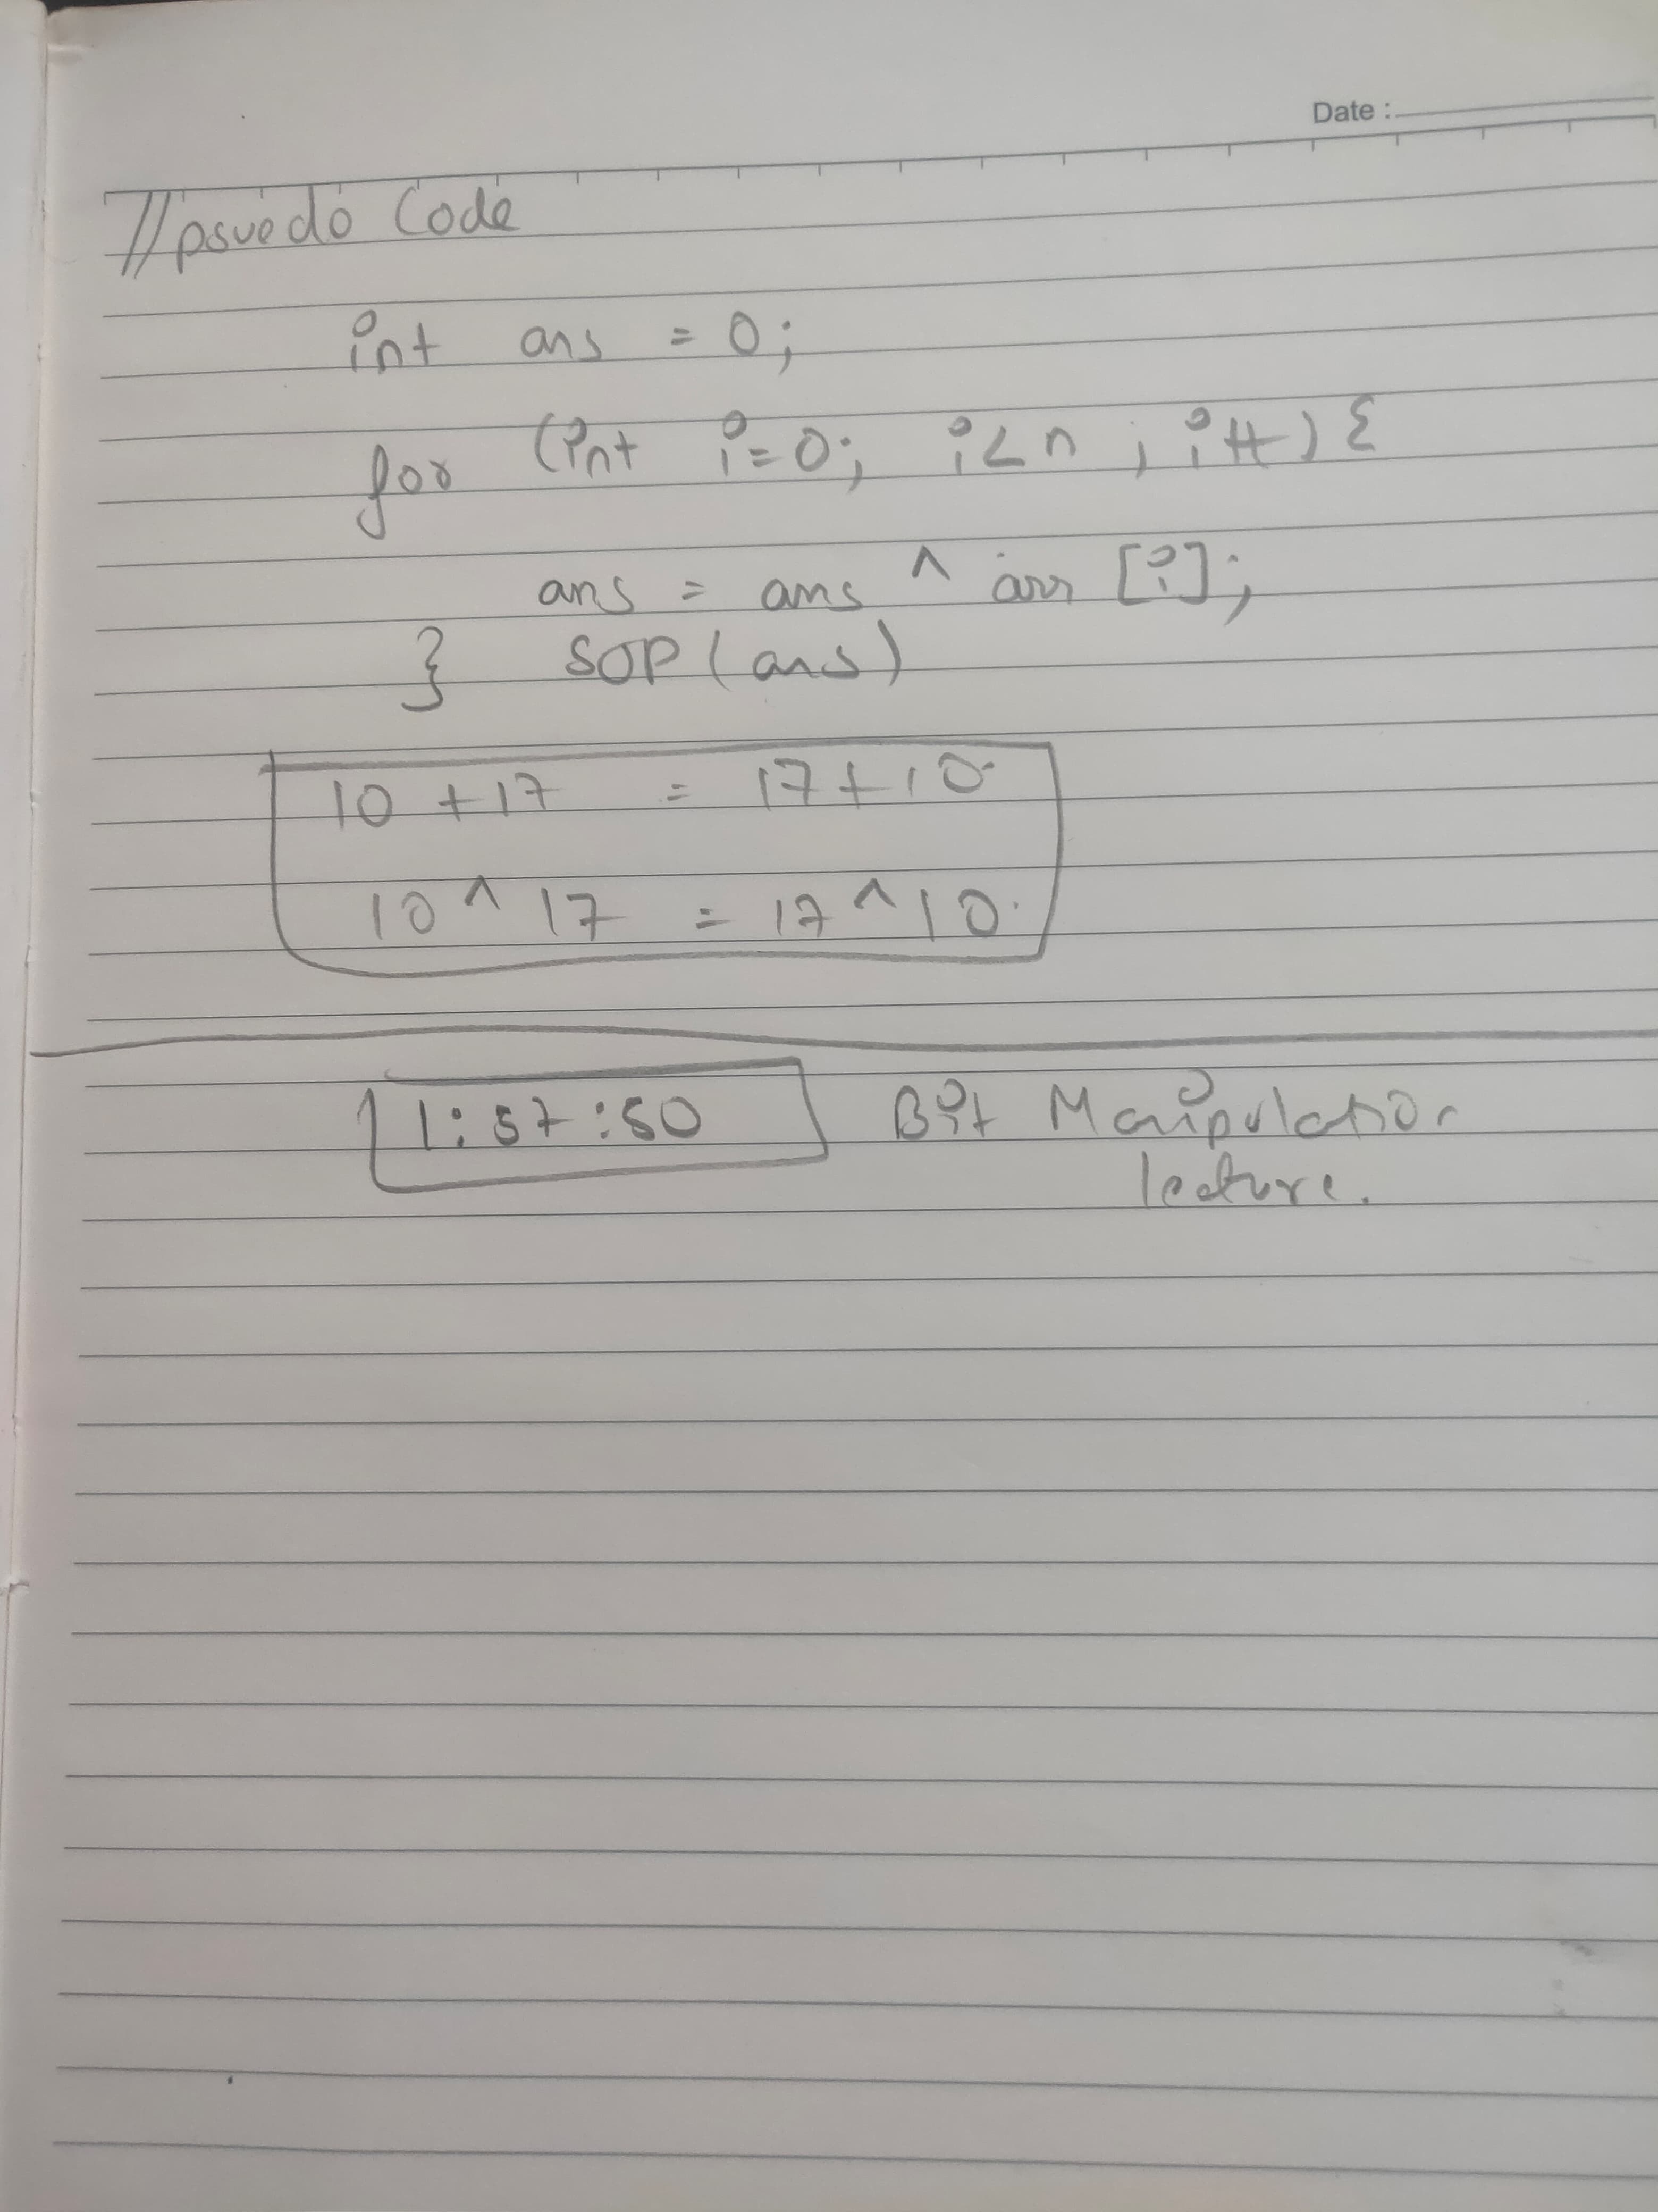 Date :
//psuedo Code
int ans = 0;
for (int i=0; i<n ; i++) {
ans = ans ^ arr [i];
} SOP (ans)
10 + 17 = 17 + 10.
10 ^ 17 = 17 ^ 10.
1:57:50 Bit Manipulation
lecture.